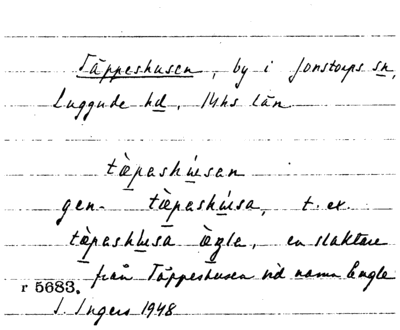 Täppeshusen, by i Jonstorps sn,
Luggude hd, Mhs län
tæ̀pashúesan
gen. tæ̀pashúesa, t. ex.
tæ̀pashúesa æ̀gla, en slaktare
från Täppeshusen vid namn Engla
r 5683.
I. Ingers 1948